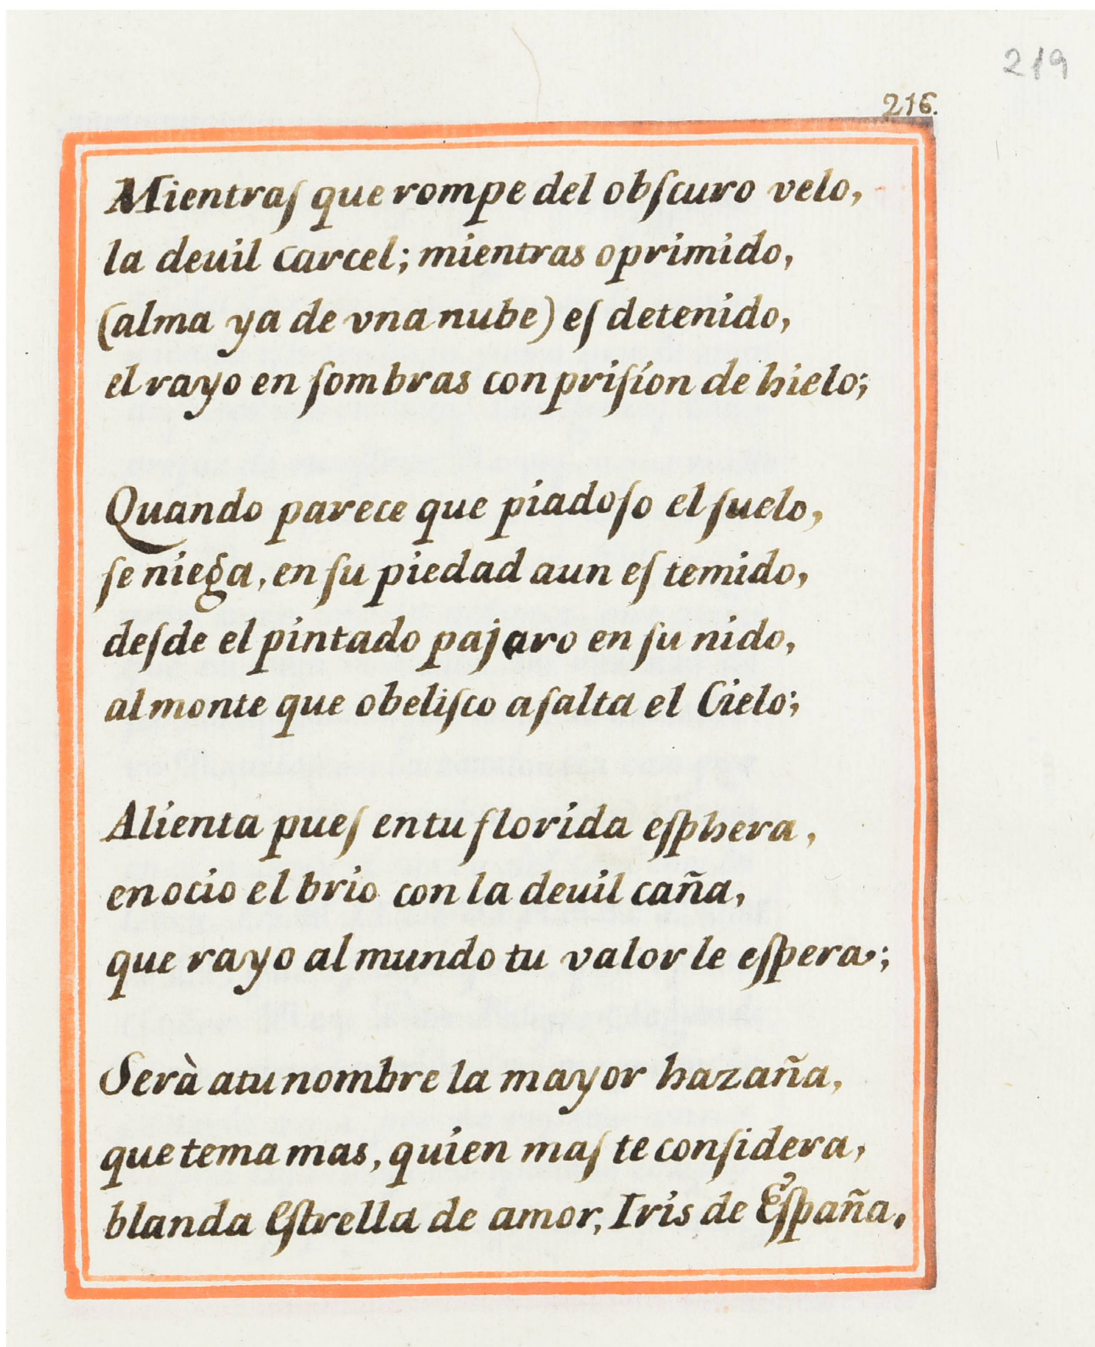 219
216.
Mientraſ que rompe del obſcuro velo,
la deuil carcel; mientras oprimido,
(alma ya de vna nube) eſ detenido,
el rayo en ſombras con priſion de hielo;
Quando parece que piadoſo el ſuelo,
ſe niega, en ſu piedad aun eſ temido,
deſde el pintado pajaro en ſu nido,
al monte que obeliſco aſalta el Cielo;
Alienta pueſ en tu florida eſphera,
en ocio el brio con la deuil caña,
que rayo al mundo tu valor le eſpera;
Serà a tu nombre la mayor hazaña,
que tema mas, quien maſ te conſidera,
blanda Eſtrella de amor, Iris de Eſpaña.